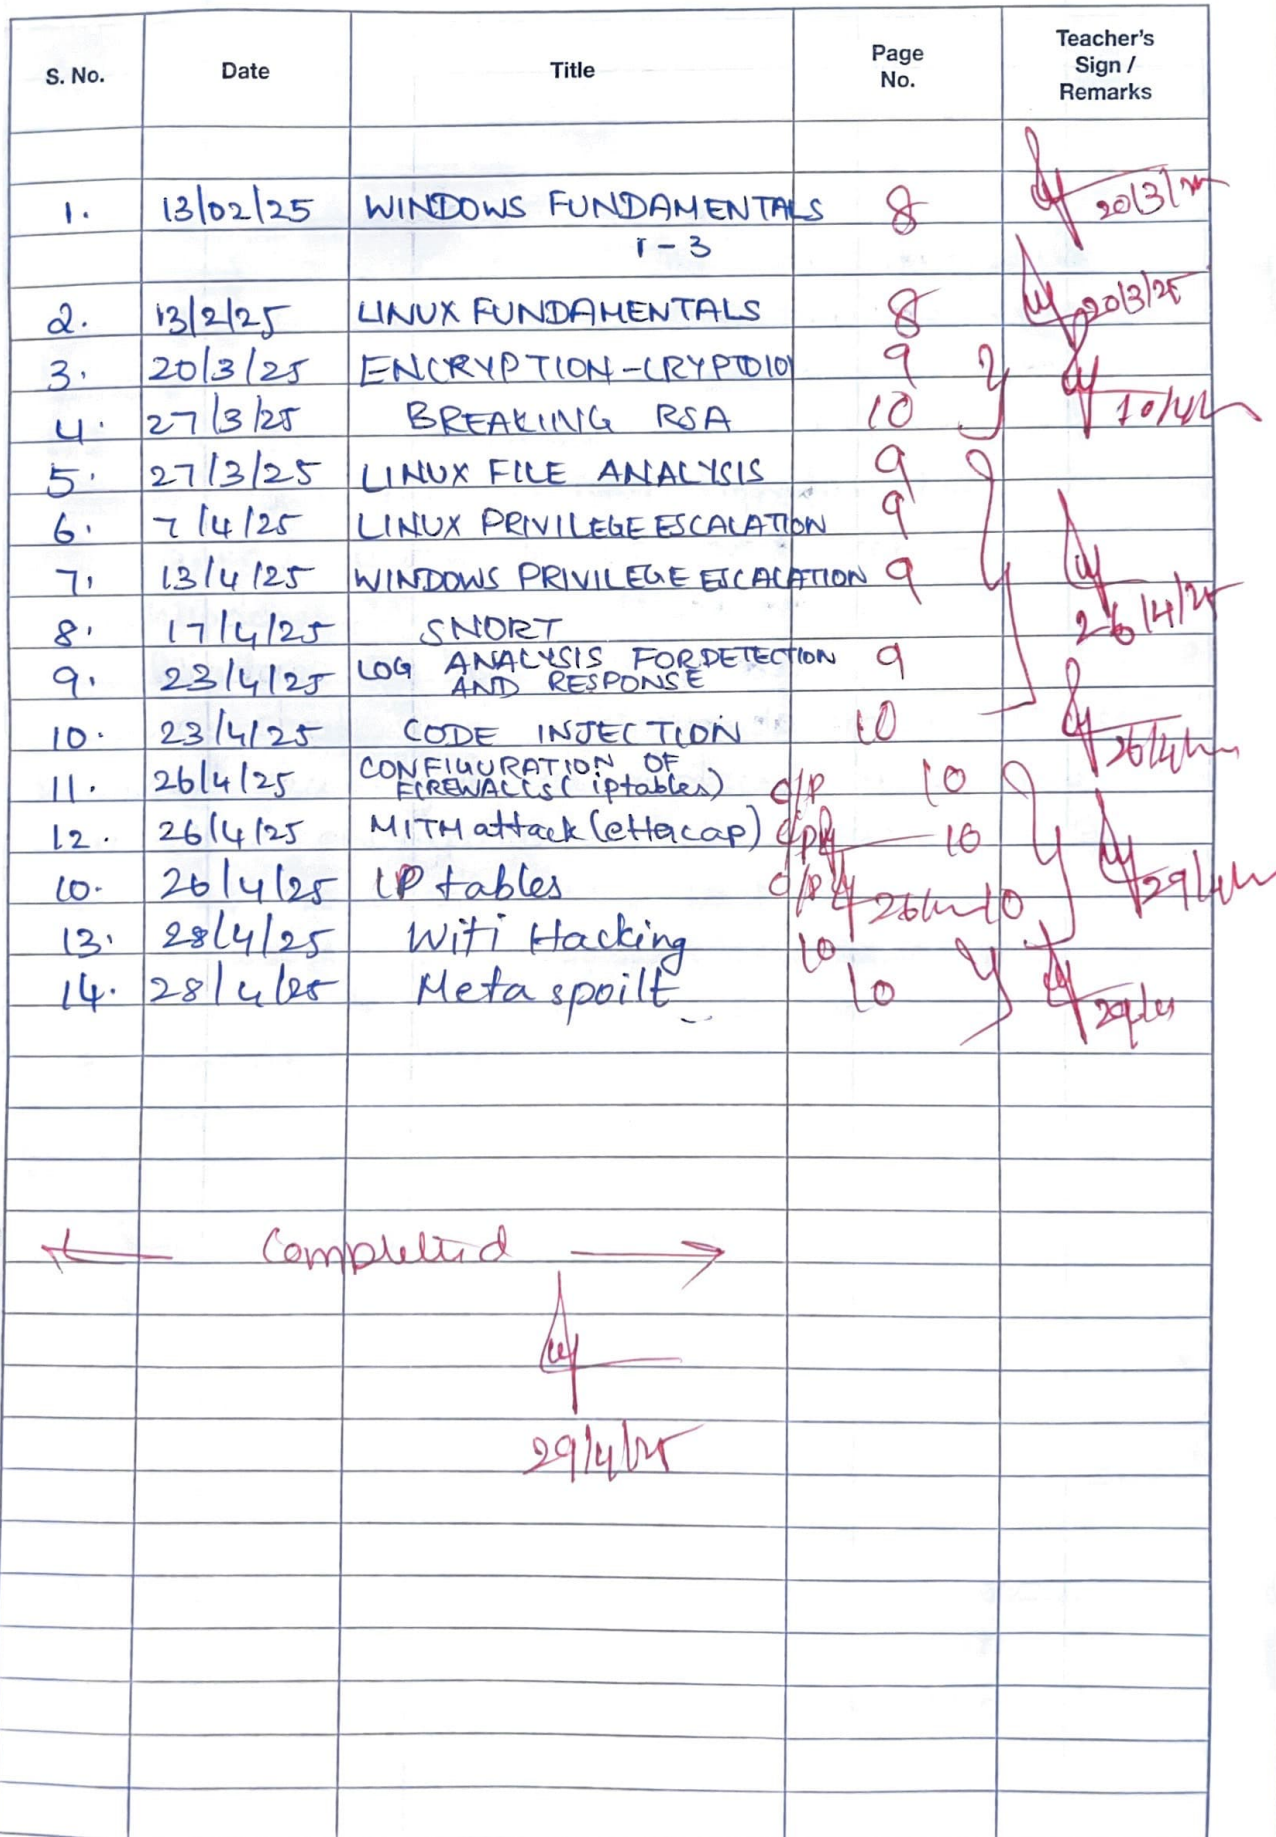 S. No. Date Title Page No. Teacher's Sign / Remarks
1. 13/02/25 WINDOWS FUNDAMENTALS 8 20/3/25
1-3
2. 13/2/25 LINUX FUNDAMENTALS 8 20/3/25
3. 20/3/25 ENCRYPTION-CRYPTO101 9
4. 27/3/25 BREAKING RSA 10 10/4/25
5. 27/3/25 LINUX FILE ANALYSIS 9
6. 7/4/25 LINUX PRIVILEGE ESCALATION 9
7. 13/4/25 WINDOWS PRIVILEGE ESCALATION 9
8. 17/4/25 SNORT 26/4/25
9. 23/4/25 LOG ANALYSIS FOR DETECTION 9
AND RESPONSE
10. 23/4/25 CODE INJECTION 10 26/4/25
11. 26/4/25 CONFIGURATION OF
FIREWALLS (iptables) O/P 10
12. 26/4/25 MITM attack (ettercap) O/P 10
10. 26/4/25 IP tables O/P 26/4/25 10 29/4/25
13. 28/4/25 Wifi Hacking 10
14. 28/4/25 Metaspoilt 10 29/4/25
Completed
29/4/25